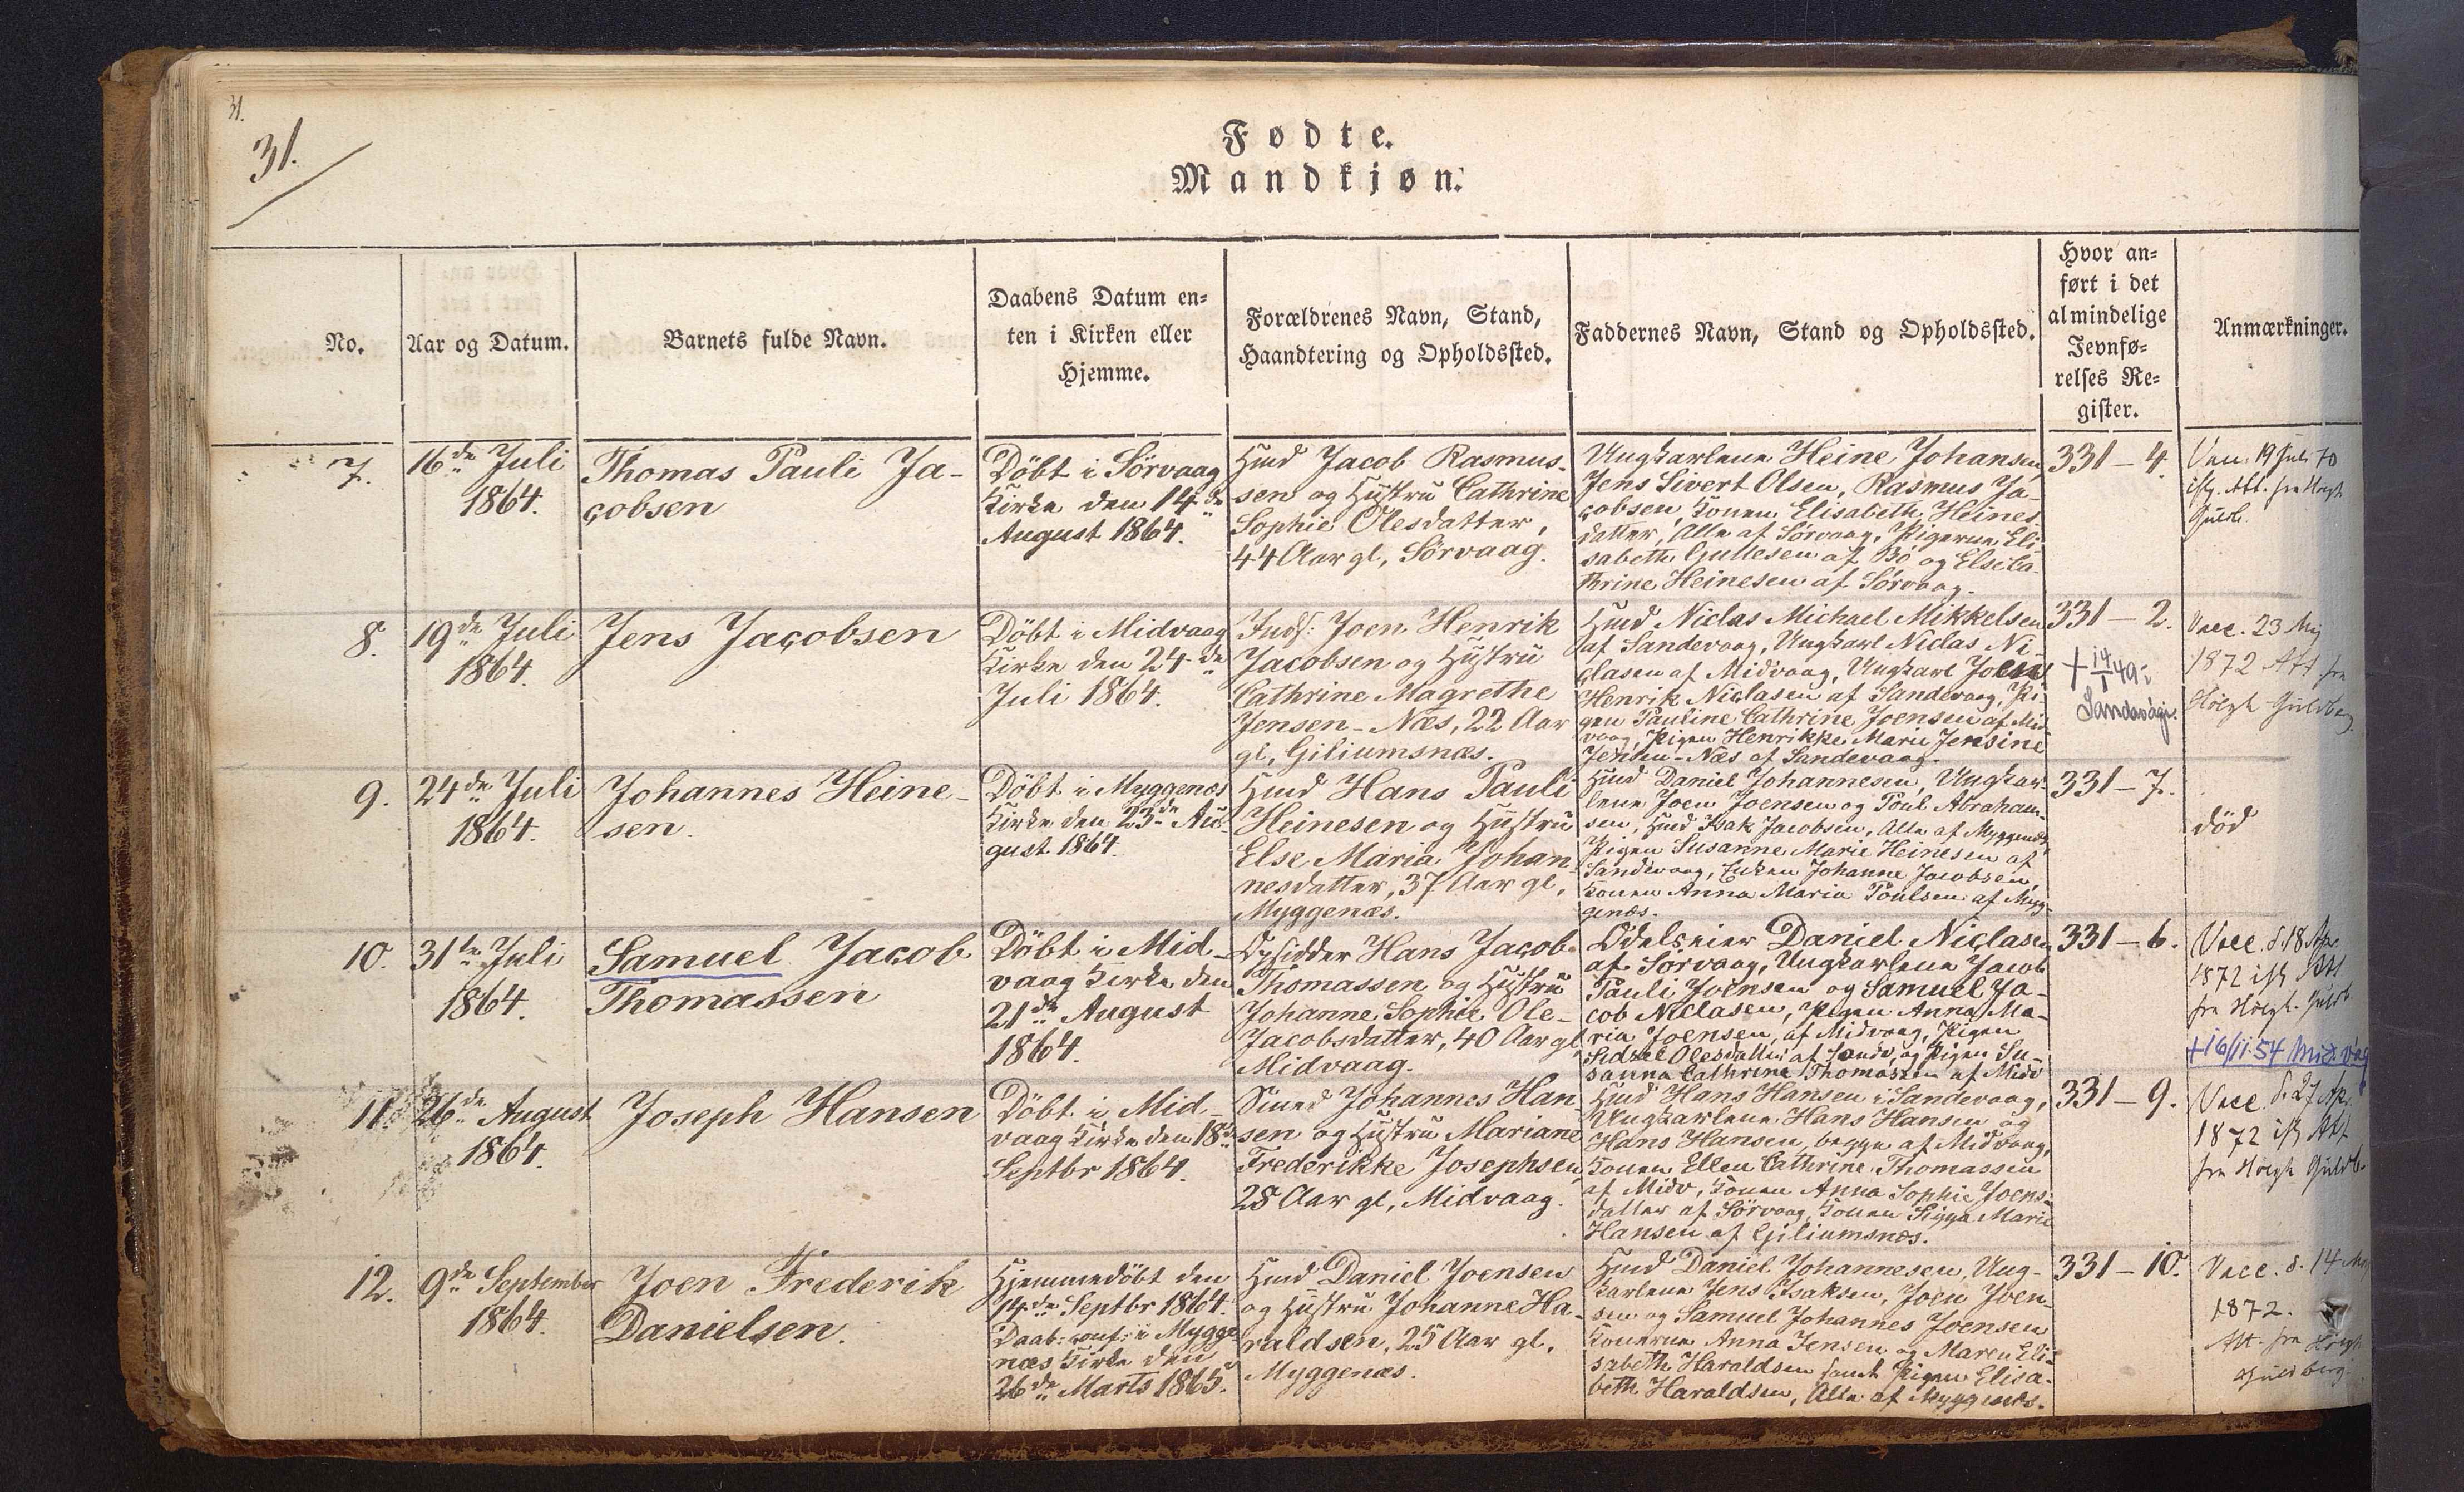 31.
31.
Fødte.
Mandkjøn.
No.
Aar og Datum.
Barnets fulde Navn.
Daabens Datum en-
ten i Kirken eller
Hjemme.
Forældrenes Navn, Stand,
Haandtering og Opholdssted.
Faddernes Navn, Stand og Opholdssted.
Hvor an-
ført i det
almindelige
Jevnfø-
relses Re-
gister.
Anmærkninger.
7.
16de Juli
1864.
Thomas Pauli Ja-
cobsen
Döbt i Sörvaag
Kirke den 14de
August 1864.
Hmd Jacob Rasmus-
sen og Hustru Cathrine
Sophie Olesdatter,
44 Aar gl, Sörvaag.
Ungkarlene Heine Johansen,
Jens Sivert Olsen, Rasmus Ja-
cobsen, Konen Elisabeth Heines
datter, Alle af Sörvaag, Pigerne Eli-
sabeth Gullesen af Bö og Else Ca-
thrine Heinesen af Sörvaag.
331 - 4.
19 Juli 70
8.
19de Juli
1864.
Jens Jacobsen
Döbt i Midvaag
Kirke den 24de
Juli 1864.
Inds: Joen Henrik
Jacobsen og Hustru
Cathrine Magrethe
Jensen-Næs, 22 Aar
gl, Giliumsnæs.
Hmd Niclas Michael Mikkelsen
af Sandevaag, Ungkarl Niclas Ni-
clasen af Midvaag, Ungkarl Joen
Henrik Niclasen af Sandevaag, Pi-
gen Pauline Cathrine Joensen af Mid-
vaag, Pigen Henrikke Marie Jensine
Jensen-Næs af Sandevaag.
331 - 2.
+ 14/1 49 i
Sandavági.
Vacc. 23 Maj
1872 Att fra
Höegh-Guldberg
9.
24de Juli
1864.
Johannes Heine-
sen.
Döbt i Myggenæs
Kirke den 23de Au-
gust 1864.
Hmd Hans Pauli
Heinesen og Hustru
Else Maria Johan-
nesdatter, 37 Aar gl,
Myggenæs.
Hmd Daniel Johannesen, Ungkar-
lene Joen Joensen og Poul Abraham-
sen, Hmd Isak Jacobsen, Alle af Myggenæs,
Pigen Susanne Marie Heinesen af
Sandevaag, Enken Johanne Jacobsen,
Konen Anna Maria Poulsen af Myg-
genæs.
331 - 7.
död
10.
31te Juli
1864.
Samuel Jacob
Thomassen
Döbt i Mid-
vaag Kirke den
21de August
1864.
Opsidder Hans Jacob
Thomassen og Hustru
Johanne Sophie Ole-
Jacobsdatter, 40 Aar gl
Midvaag.
Odelseier Daniel Niclasen
af Sörvaag, Ungkarlene Jacob
Pauli Joensen og Samuel Ja-
cob Niclasen, Pigen Anna Ma-
ria Joensen, af Midvaag, Pigen
Sidsel Olesdatter af Sandv, og Pigen Su-
sanna Cathrine Thomassen af Midv
331 - 6.
Vacc. d. 18 Apr.
1872 Att
fra Höegh-Guldb
+ 16/11.54 Miðvág
11.
26de August
1864.
Joseph Hansen
Döbt i Mid-
vaag Kirke den 18de
Septbr 1864.
Smed Johannes Han-
sen og Hustru Mariane
Frederikke Josephsen,
28 Aar gl, Midvaag.
Hmd Hans Hansen i Sandevaag,
Ungkarlene Hans Hansen og
Hans Hansen, begge af Midvaag,
Konen Ellen Cathrine Thomassen
af Midv, Konen Anna Sophie Joens-
datter af Sörvaag, Konen Sigga Marie
Hansen af Giliumsnæs.
331 - 9.
Vacc. d. 27 Apr.
1872 Att
fra Höegh Guldb.
12.
9de September
1864.
Joen Frederik
Danielsen.
Hjemmedöbt den
14de Septbr 1864.
Daab: conf: i Mygge
næs Kirke den
26de Marts 1865.
Hmd Daniel Joensen
og Hustru Johanne Ha-
raldsen, 25 Aar gl.
Myggenæs.
Hmd Daniel Johannesen, Ung-
karlene Jens Isaksen, Joen Joen-
sen og Samuel Johannes Joensen
Konerne Anna Jensen og Maren Eli-
sabeth Haraldsen samt Pigen Elisa-
beth Haraldsen, Alle af Myggenæs.
331 - 10.
Vacc. d. 14 Maj
1872.
Att. fra Höegh
Guldberg.